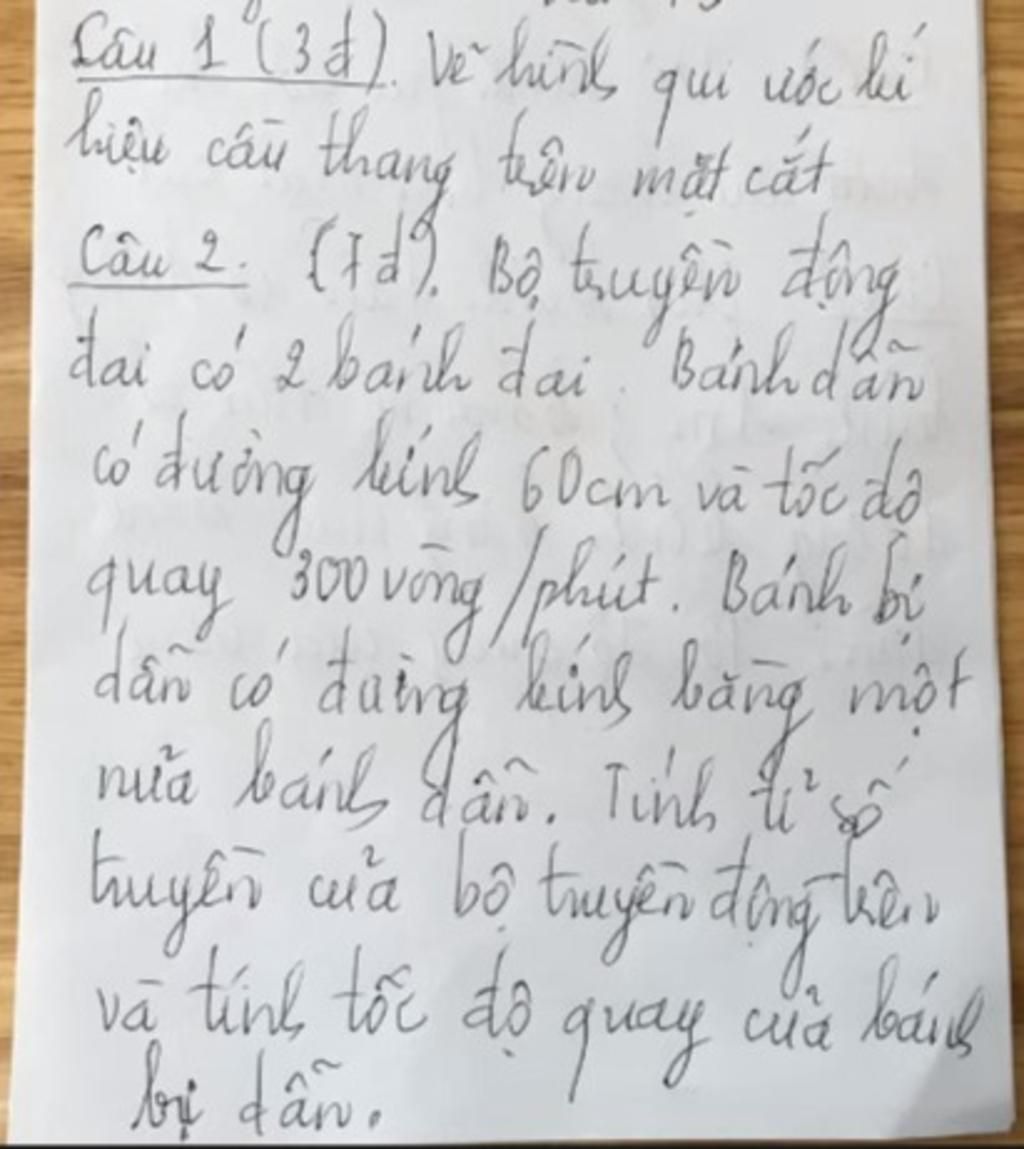 Câu 1 (3đ). Vẽ hình qui ước kí
hiệu cầu thang trên mặt cắt
Câu 2. (7đ). Bộ truyền động
đai có 2 bánh đai. Bánh dẫn
có đường kính 60cm và tốc độ
quay 300 vòng/phút. Bánh bị
dẫn có đường kính bằng một
nửa bánh dẫn. Tính tỉ số
truyền của bộ truyền động trên
và tính tốc độ quay của bánh
bị dẫn.